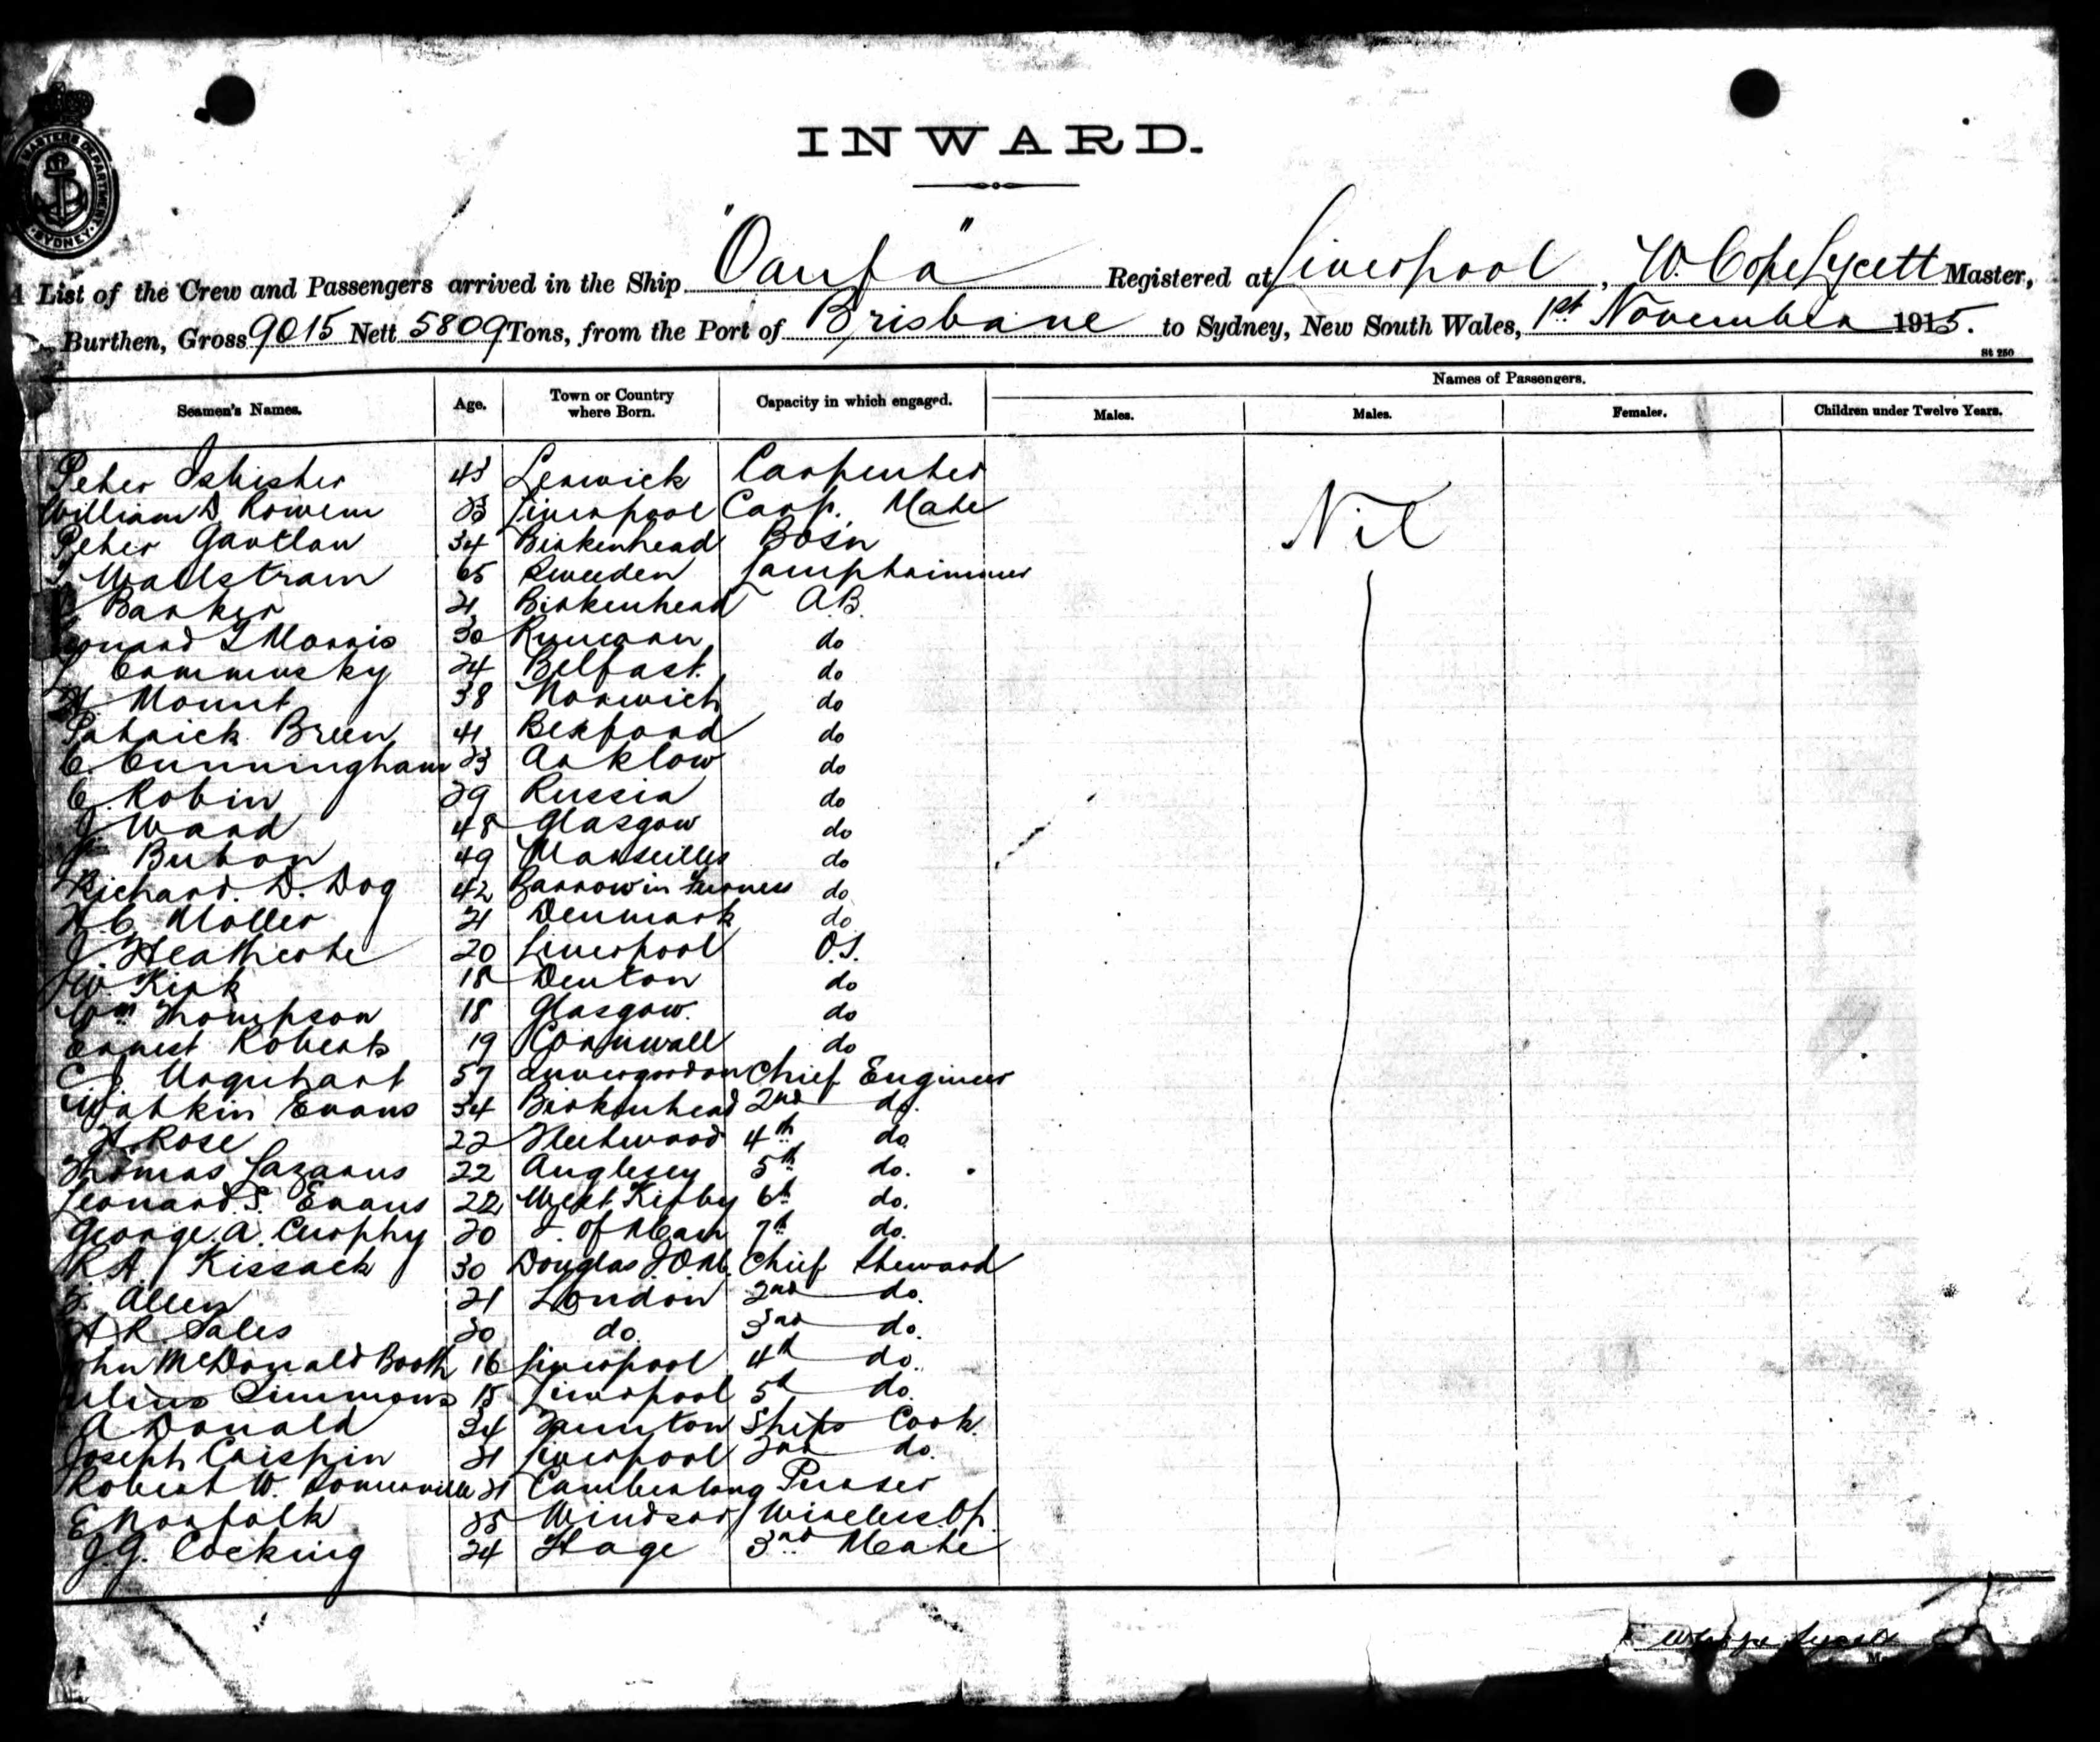 MASTERS DEPARTMENT SYDNEY
INWARD.
A List of the Crew and Passengers arrived in the Ship "Oanfa" Registered at Liverpool, W. Cope Lycett Master,
Burthen, Gross 9015 Nett 5809 Tons, from the Port of Brisbane to Sydney, New South Wales, 1st November 1915.
St 250
Names of Passengers.
Seamen's Names. Age. Town or Country where Born. Capacity in which engaged. Males. Males. Females. Children under Twelve Years.
Peter Isbister Lerwick Carpenter
William D Rowem 23 Liverpool Carp. Mate Nil
Peter Gantlan 34 Birkenhead Bosn
Wallstram 65 Sweeden Lamptrimmer
Barker 21 Birkenhead A.B.
Morris 30 Runcorn do
Commusky 24 Belfast. do
H Mount 38 Norwich do
Patrick Breen 41 Bexford do
C. Cunningham 23 Arklow do
C. Robin 29 Russia do
J. Ward 48 Glasgow do
Buton 49 Marseilles do
Richard. D. Dog 42 Barrow in Furness do
H.C. Moller 21 Denmark do
J. Heathcote 20 Liverpool O.S.
W. Kirk 18 Denton do
Wm Thompson 18 Glasgow. do
Ernest Roberts 19 Cornwall do
C J. Urquhart 57 Invergordon Chief Engineer
Watkin Evans 34 Birkenhead 2nd do.
H. Rose 22 Fleetwood 4th do
Thomas Lazarus 22 Anglesey 5th do.
Leonard. S. Evans 22 West Kirby 6th do.
George. A. Curphy 20 I. of Man 7th do.
R.A. Kissack 30 Douglas I.O.M. Chief Steward
Allen 21 London 2nd do.
H R. Sales 20 do. 3rd do.
John McDonald Booth 16 Liverpool 4th do.
Julius Simmons 15 Liverpool 5th do.
A Donald 34 Taunton Ships Cook
Joseph Crispin 21 Liverpool 2nd do.
Robert W. Somerville 21 Cambuslang Purser
E Norfolk 25 Windsor Wireless. Op.
J.G. Cocking 24 Hage 3rd Mate
W Cope Lycett